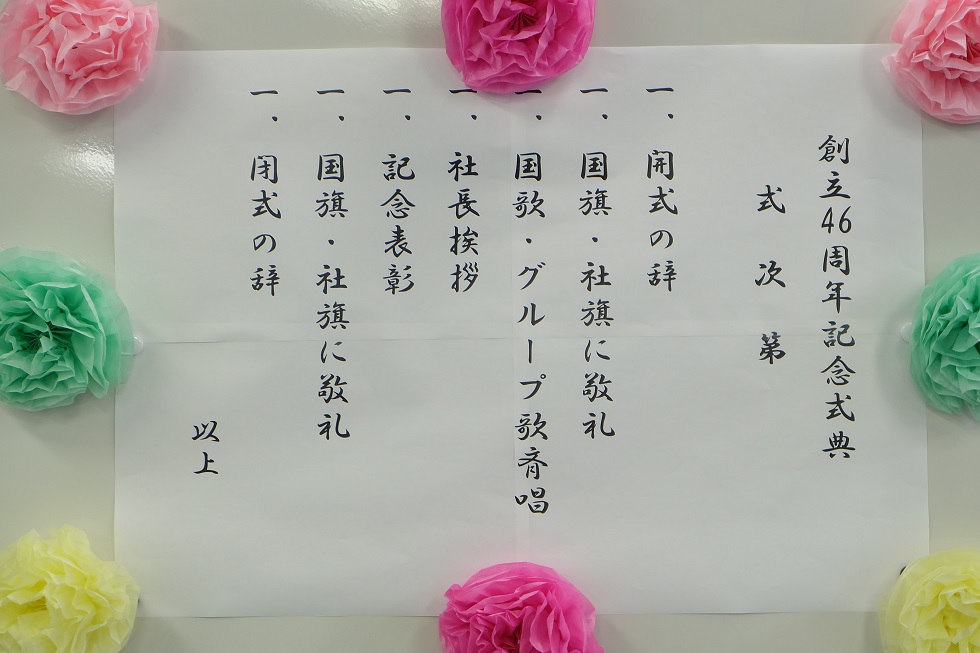 創立46周年記念式典
式次第
一.開式の辞
一.国旗・社旗に敬礼
一.国歌・グループ歌斉唱
一.社長挨拶
一.記念表彰
一.国旗・社旗に敬礼
一.閉式の辞
以上